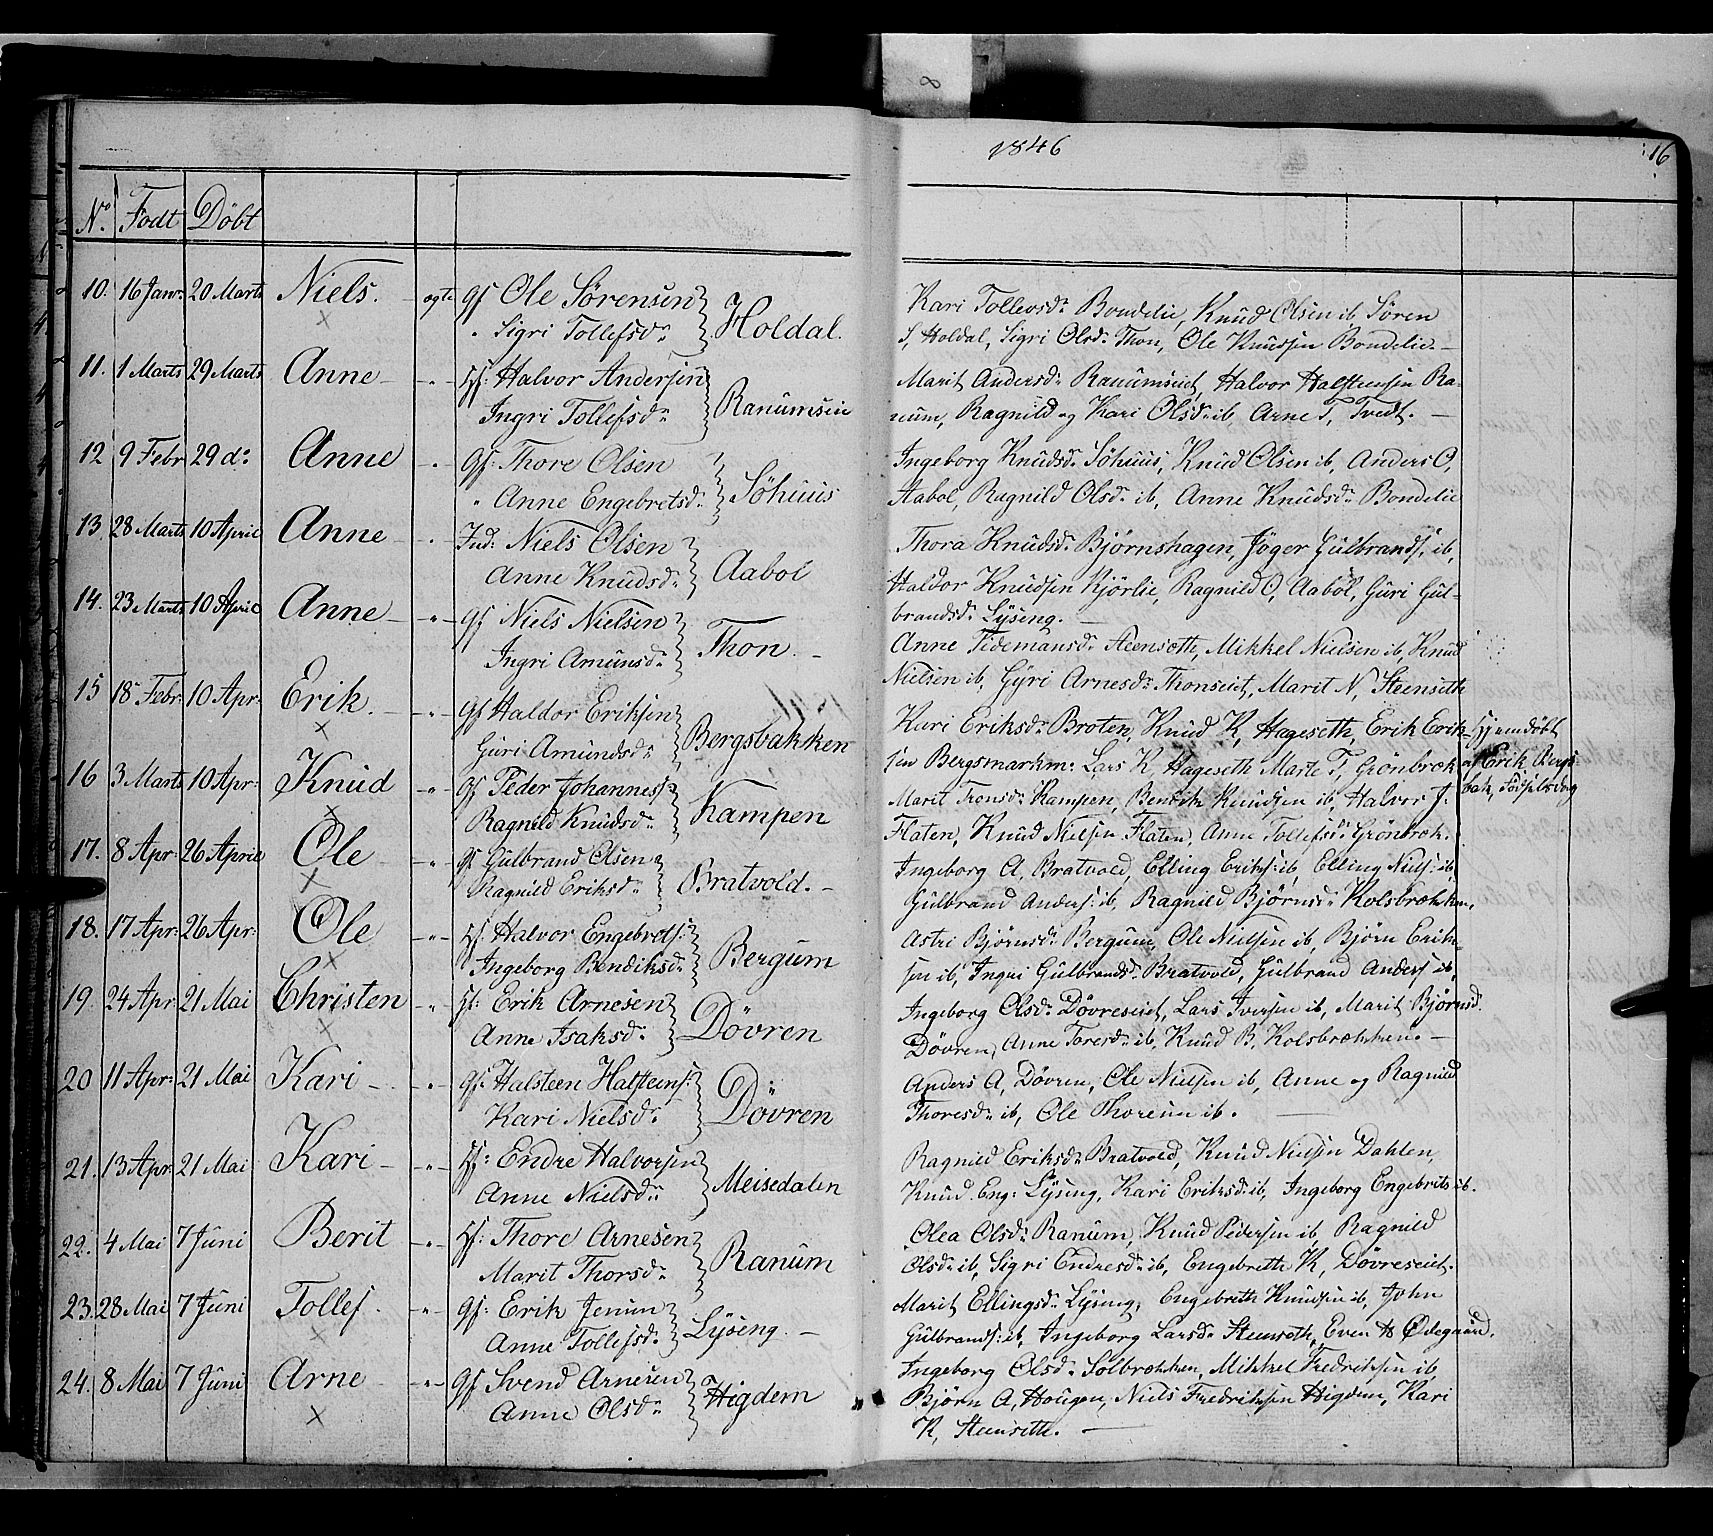 1846
16
8
No. Födt Döbt
10. 16 Janr. 20 Marts Niels. ægte Gf Ole Sörensen Holdal.
" Sigri Tollefsdr.
Kari Tollevsdr. Bondelie, Knud Olsen ib Søren
S, Holdal, Sigri Olsdr. Thon, Ole Knudsen Bondelie. —
11. 1 Marts 29 Marts Anne — " — Hf: Halvor Andersen Ranumsein
Ingri Tollefsdr.
Marit Andersdr. Ranumseiet, Halvor Halsteensen Ra-
num, Ragnild og Kari Olsdr. ib, Arne T, Tvedt. —
12 9 Febr 29 do. Anne — " — Gf: Thore Olsen Söhuus
" Anne Engebretsdr.
Ingeborg Knudsdr. Söhuus, Knud Olsen ib, Anders O,
Aabol, Ragnild Olsdr. ib, Anne Knudsdr. Bondelie
13. 28 Marts 10 April Anne — " Ind: Niels Olsen Aabol
Anne Knudsdr.
Thora Knudsdr. Bjørnshagen, Jöger Gulbrands. ib,
Haldor Knudsen Kjörlie, Ragnild O, Aaböl, Guri Gul-
brandsdr. Lyseng. —
14. 23 Marts 10 April Anne — " — Gf Niels Nielsen Thon. —
Ingri Amunsdr.
Anne Tidemansdr. Steensæth, Mikkel Nielsen ib, Knud
Nielsen ib, Gyri Arnesdr. Thonseiet, Marit N, Steensæth
15 18 Febr. 10 Apr. Erik. — " — Gf Haldor Eriksen Bergsbakken
Guri Amundsdr.
Kari Eriksdr. Broten, Knud K, Hageseth, Erik Erik-
sen Bergsmarkm: Lars K, Hageseth Marte T, Grönbræk
Hjemdöbt
af Erik Bergs-
bak, Födselsdag
16 3 Marts 10 Apr: Knud " Gf Peder Johanness: Kampen
Ragnild Knudsdr.
Marit Tronsdr. Kampen, Bendik Knudsen ib, Halvor J.
Flaten, Knud Nielsen Flaten, Anne Tollefsdr. Grönbræk.
17. 8 Apr 26 April Ole — " Gf Gulbrand Olsen, Bratvold. —
Ragnild Eriksdr.
Ingeborg A, Bratvold, Elling Eriks: ib, Elling Niels: ib,
Gulbrand Anders: ib, Ragnild Björnsdr. Kolsbrækken,
18. 17 Apr: 26 Apr: Ole — " — Hf: Halvor Engebrets: Bergum
Ingeborg Bendiksdr.
Astri Björnsdr. Bergum, Ole Nielsen ib, Björn Erik-
sen ib, Ingri Gulbrandsdr. Bratvold, Gulbrand Anders ib,
19. 24 Apr 21 Mai Christen " Hf: Erik Arnesen Dövren
Anne Isaksdr.
Ingeborg Olsdr. Dövreseiet, Lars Iversen ib, Marit Björnsd.
Dövren, Anne Toresdr. ib, Knud B, Kolsbrækken. —
20 11 Apr: 21 Mai Kari — " Gf: Halsteen Halsteens: Dövren
Kari Nielsdr.
Anders A, Dövren, Ole Nielsen ib, Anne og Ragnild
Thoresdr. ib, Ole Thoresen ib. —
21. 13 Apr 21 Mai Kari — " — Hf: Endre Halvorsen Meisedalen
Anne Nielsdr.
Ragnild Eriksdr. Bratvold, Knud Nielsen Dahlen,
Knud Eng: Lyseng, Kari Eriksdr. ib, Ingeborg Engebrits ib.
22. 4 Mai 7 Juni Berit — " — Hf: Thore Arnesen Ranum
Marit Thorsdr.
Olea Olsdr. Ranum, Knud Pedersen ib, Ragnild
Olsdr. ib, Sigri Endresdr. ib, Engebreth K, Dövreseiet.
23. 28 Mai 7 Juni Tollef. " Gf: Erik Jensen Lyseng. —
Anne Tollefsdr.
Marit Ellingsdr. Lyseng, Engebreth Knudsen ib, John
Gulbrands: ib, Ingeborg Larsdr. Steensæth, Even H Ødegaard.
24. 8 Mai 7 Juni Arne — " — Gf Svend Arnesen Higdem
Anne Olsdr.
Ingeborg Olsdr. Solbrækken, Mikkel Fredriksen ib,
Björn A, Hougen, Niels Fredriksen Higdem, Kari
K, Steensæth. —